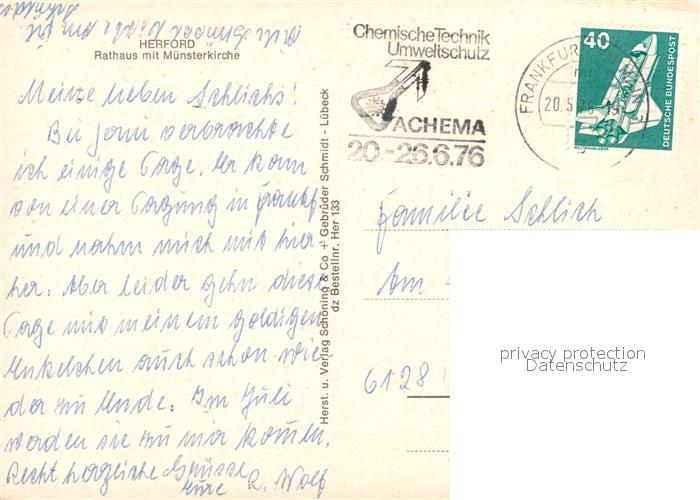 HERFORD
Rathaus mit Münsterkirche
Meine lieben Schlichs!
Bei Jorni verbrachte
ich einige Tage. Er kam
von einer Tagung in Frankf.
und nahm mich mit hier
her. Aber leider gehn diese
Tage mit meinem goldigen
Enkelchen auch schon wie
der zu Ende. Im Juli
werden sie zu mir kommen.
Recht herzliche Grüsse
Eure R. Wolf
Mit schönen Grüßen auch
Herst. u. Verlag Schöning & Co + Gebrüder Schmidt - Lübeck
dz Bestellnr. Her 133
Chemische Technik
Umweltschutz
ACHEMA
20.-26.6.76
FRANKFUR
20.5.76
40
DEUTSCHE BUNDESPOST
WELTRAUMLABOR
Familie Schlich
Am
6128
privacy protection
Datenschutz